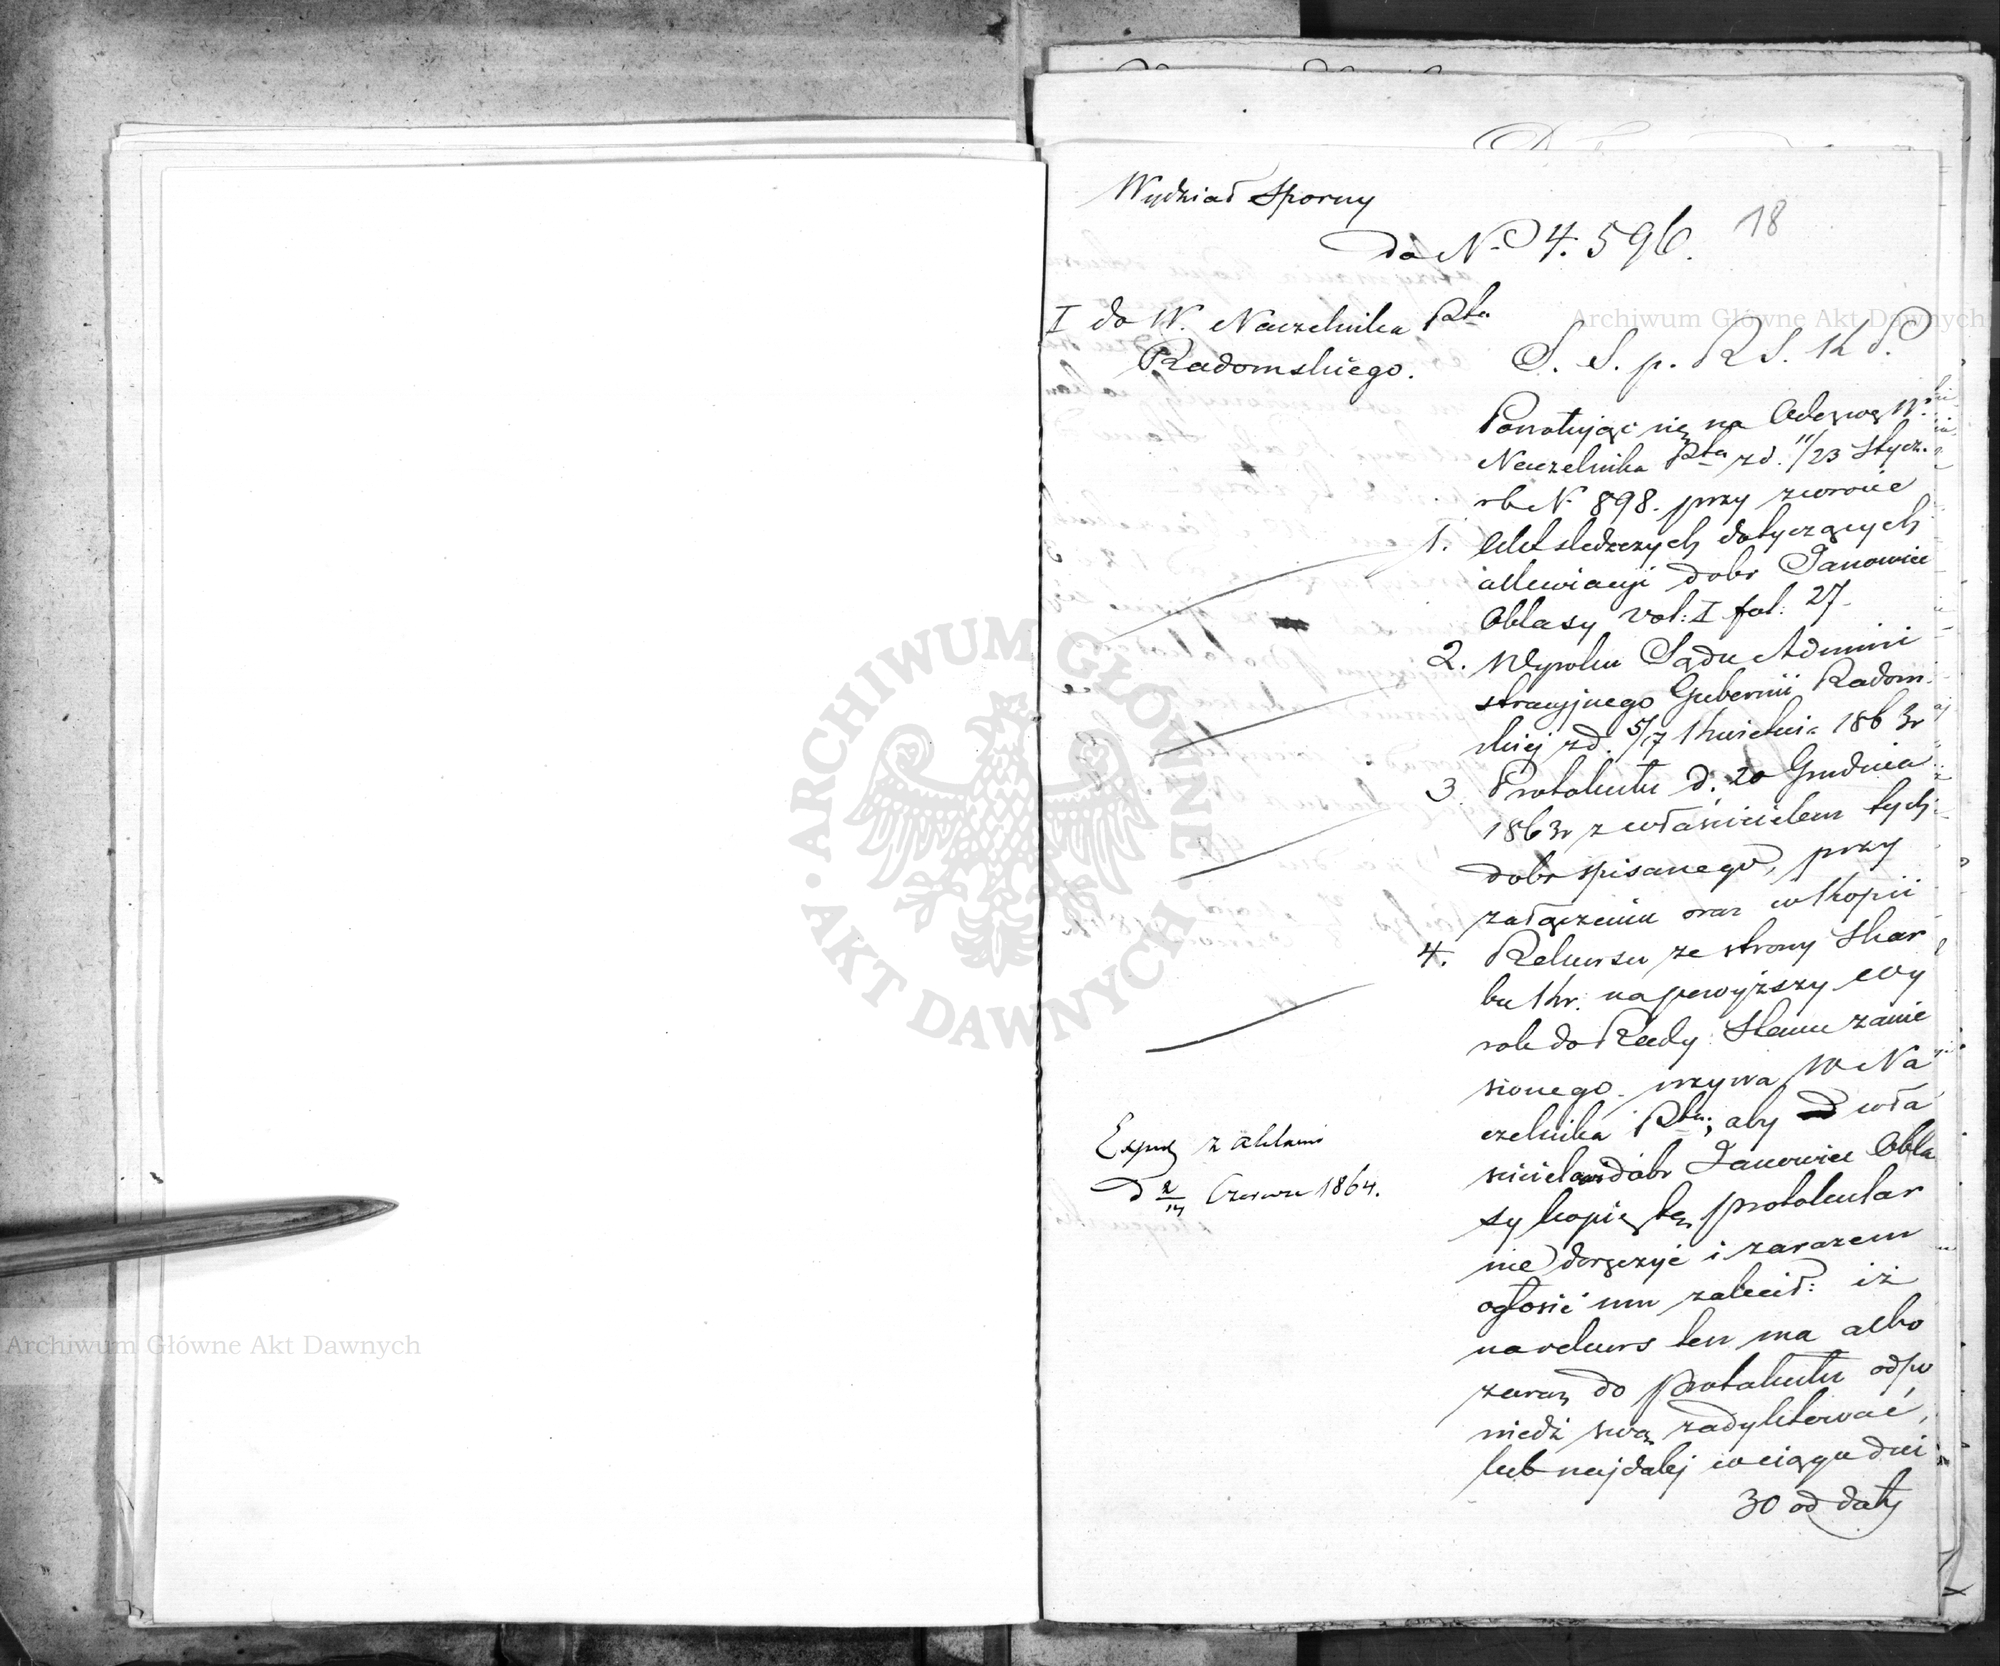 Wydział Sporny
do N. 4.596.
18
I do W. Naczelnika Ptu
Radomskiego.
S. S. p. R S. K P.
Powołując się na Odezwę W.
Naczelnika Ptu z d. 11/23 Stycz.
rb N. 898. przy zwrocie
1. Akt śledczych dotyczących
allewiacyi dobr Janowice
Oblasy vol: I fol: 27
2. Wyroku Sądu Admini
stracyjnego Gubernii Radom
skiej z d. 5/17 Kwietnia 1863r
3. Protokułu d. 20 Grudnia
1863r z właścicielem tych
dobr spisanego, przy
załączeniu oraz w Kopii
4. Rekursu ze strony Skar
bu Kr. na powyższy wy
rok do Rady Stanu zanie
sionego wzywa W Na
czelnika Ptu; aby wła
ścicielowi dobr Janowice Obla
sy kopię tę protokular
nie doręczyć i zarazem
ogłosić mu zalecił: iż
na rekurs ten ma albo
zaraz do protokułu odpo
wiedź swą zadyktować,
lub najdalej w ciągu dni
30 od daty
Exped z aktami
d 2/14 Czerwca 1864.
Archiwum Główne Akt Dawnych
Archiwum Główne Akt Dawnych
ARCHIWUM GŁÓWNE · AKT DAWNYCH ·